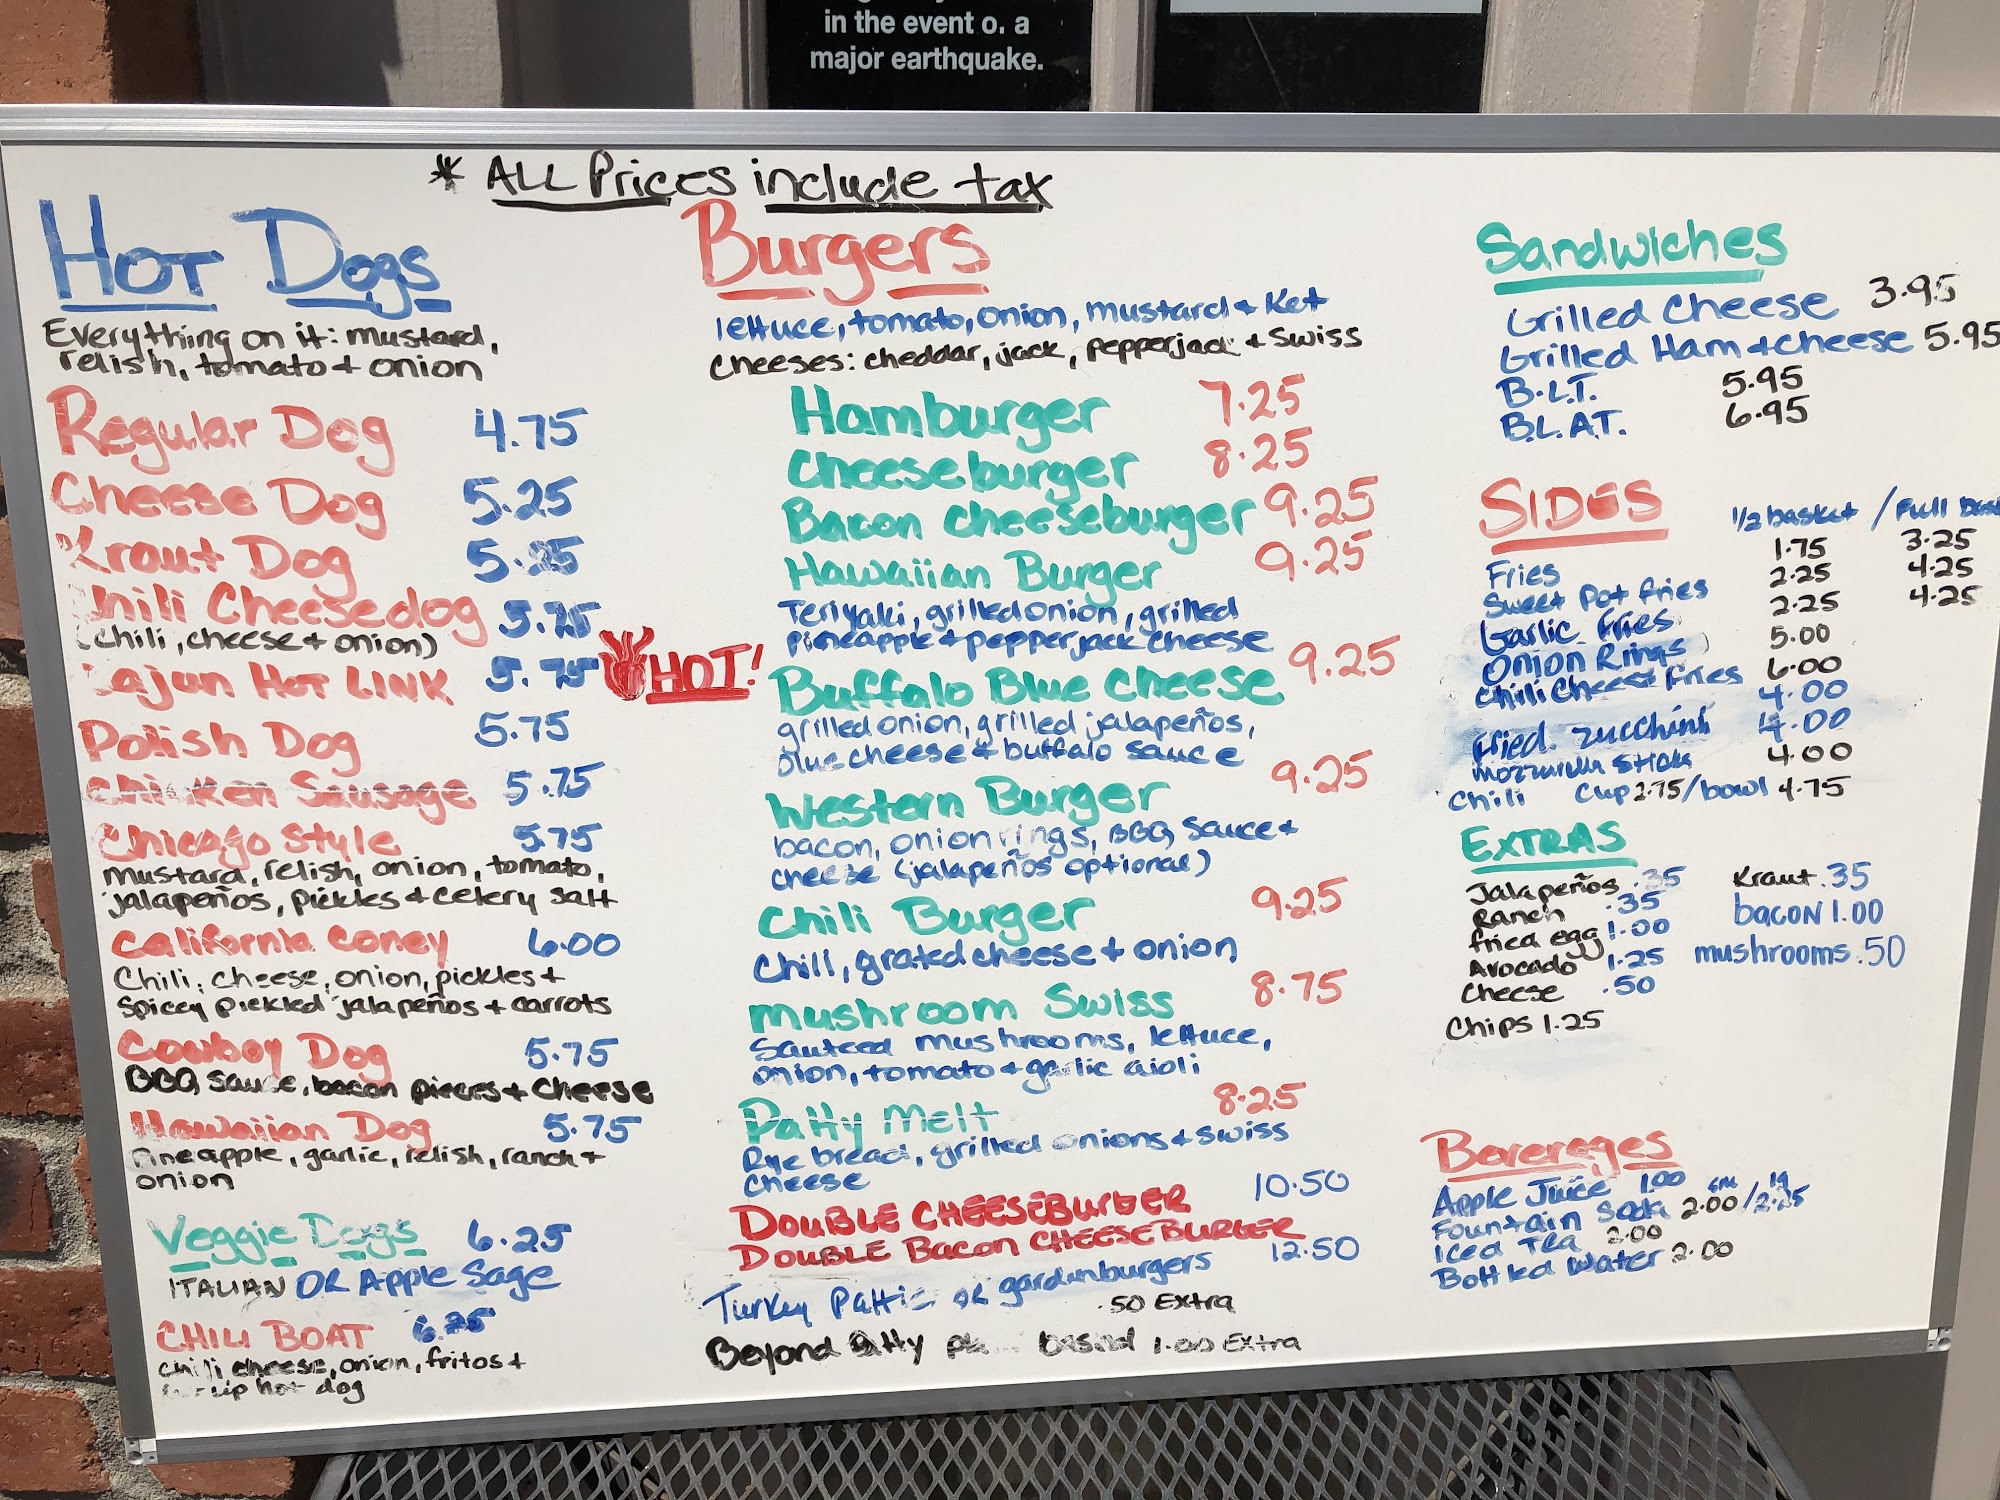 in the event o. a
major earthquake.
* ALL Prices include tax
Hot Dogs
Everything on it: mustard,
relish, tomato + onion
Regular Dog 4.75
Cheese Dog 5.25
Kraut Dog 5.25
hili Cheesedog 5.75
(chili, cheese + onion)
ajun Hot LINK 5.75 HOT!
Polish Dog 5.75
Chicken Sausage 5.75
Chicago Style 5.75
mustard, relish, onion, tomato,
jalapeños, pickles + celery salt
California Coney 6.00
Chili, cheese, onion, pickles +
Spicey pickled jalapeños + carrots
Cowboy Dog 5.75
BBQ sauce, bacon pieces + cheese
Hawaiian Dog 5.75
ineapple, garlic, relish, ranch +
onion
Veggie Dogs 6.25
ITALIAN OR Apple Sage
CHILI BOAT 6.25
chili cheese, onion, fritos +
hot dog
Burgers
lettuce, tomato, onion, mustard + Ket
Cheeses: cheddar, jack, pepperjack + swiss
Hamburger 7.25
Cheeseburger 8.25
Bacon Cheeseburger 9.25
Hawaiian Burger 9.25
Teriyaki, grilled onion, grilled
pineapple + pepper jack cheese
Buffalo Blue Cheese 9.25
grilled onion, grilled jalapeños,
blue cheese + buffalo sauce
Western Burger 9.25
bacon, onion rings, BBQ sauce +
cheese (jalapeños optional)
Chili Burger 9.25
Chili, grated cheese + onion
mushroom Swiss 8.75
Sauteed mushrooms, lettuce,
onion, tomato + garlic aioli
Patty Melt 8.25
Rye bread, grilled onions + swiss
cheese
DOUBLE CHEESEBURGER 10.50
DOUBLE BACON CHEESEBURGER 12.50
Turkey Pattie or gardenburgers
.50 Extra
Beyond Patty 1.00 Extra
Sandwiches
Grilled Cheese 3.95
Grilled Ham + cheese 5.95
B.L.T. 5.95
B.L.A.T. 6.95
SIDES 1/2 basket / Full
Fries 1.75 3.25
Sweet Pot fries 2.25 4.25
Garlic Fries 2.25 4.25
Onion Rings 5.00
Chili Cheese Fries 6.00
4.00
Fried zucchini 4.00
mozzarella sticks 4.00
Chili Cup 2.75/bowl 4.75
EXTRAS
Jalapeños .35 Kraut .35
Ranch .35 bacon 1.00
fried egg 1.00 mushrooms .50
Avocado 1.25
Cheese .50
Chips 1.25
Beverages
Apple Juice 1.00 sm lg
Fountain Soda 2.00/2.25
Iced Tea 2.00
Bottled Water 2.00